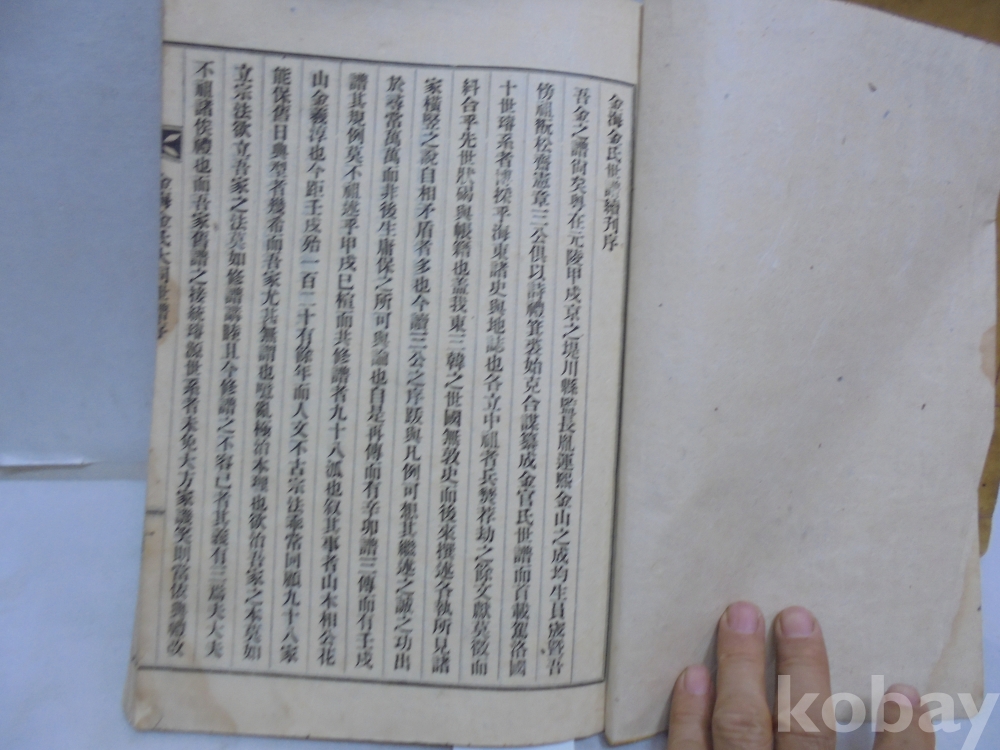 金海金氏世譜續刊序
吾金之譜尙矣粤在元陵甲戌京之堤川縣監長胤運熙金山之成均生員宬曁吾
傍祖衡松齋憲章三公俱以詩禮箕裘始克合謀纂成金官氏世譜而首載駕洛國
十世璿系者博採乎海東諸史與地誌也各立中祖者兵燹荐劫之餘文獻莫徵而
料合乎先世狀碣與帳籍也盖我東三韓之世國無敦史而後來撰述各執所見諸
家橫竪之說自相矛盾者多也今讀三公之序跋與凡例可想其繼述之誠之功出
於尋常萬萬而非後生庸保之所可與論也自是再傳而有辛卯譜三傳而有壬戌
譜其規例莫不祖述乎甲戌已楦而共修譜者九十八派也叙其事者山木相公花
山金羲淳也今距壬戌殆一百二十有餘年而人文不古宗法乖常回顧九十八家
能保舊日典型者幾希而吾家尤甚無謂也噫亂極治本理也欲治吾家之本莫如
立宗法欲立吾家之法莫如修譜講睦且今修譜之不容已者其義有三焉夫大夫
不祖諸侯禮也而吾家舊譜之接統璿源世系者未免大方家譏笑則當依典禮改
金海金氏大同世譜序
kobay